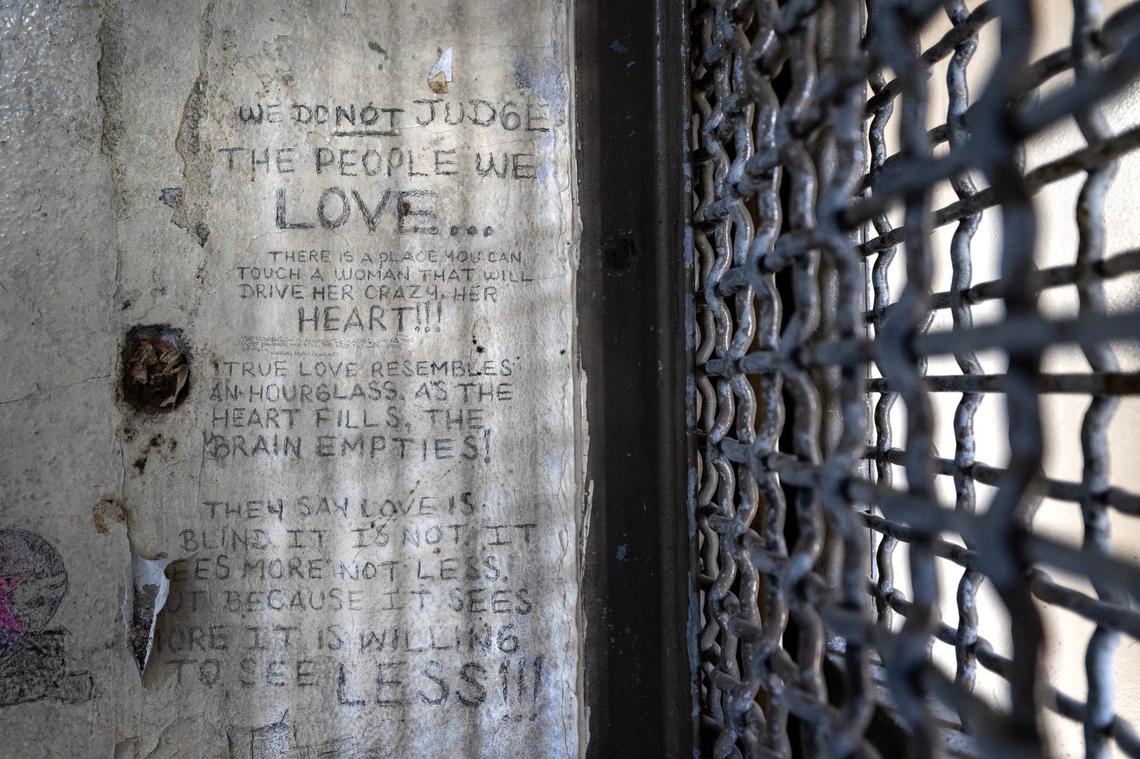 WE DO NOT JUDGE
THE PEOPLE WE
LOVE...
THERE IS A PLACE YOU CAN
TOUCH A WOMAN THAT WILL
DRIVE HER CRAZY, HER
HEART!!!
TRUE LOVE RESEMBLES
AN HOURGLASS. AS THE
HEART FILLS, THE
BRAIN EMPTIES!
THEY SAY LOVE IS
BLIND IT IS NOT, IT
EES MORE NOT LESS.
UT BECAUSE IT SEES
ORE IT IS WILLING
TO SEE LESS!!!